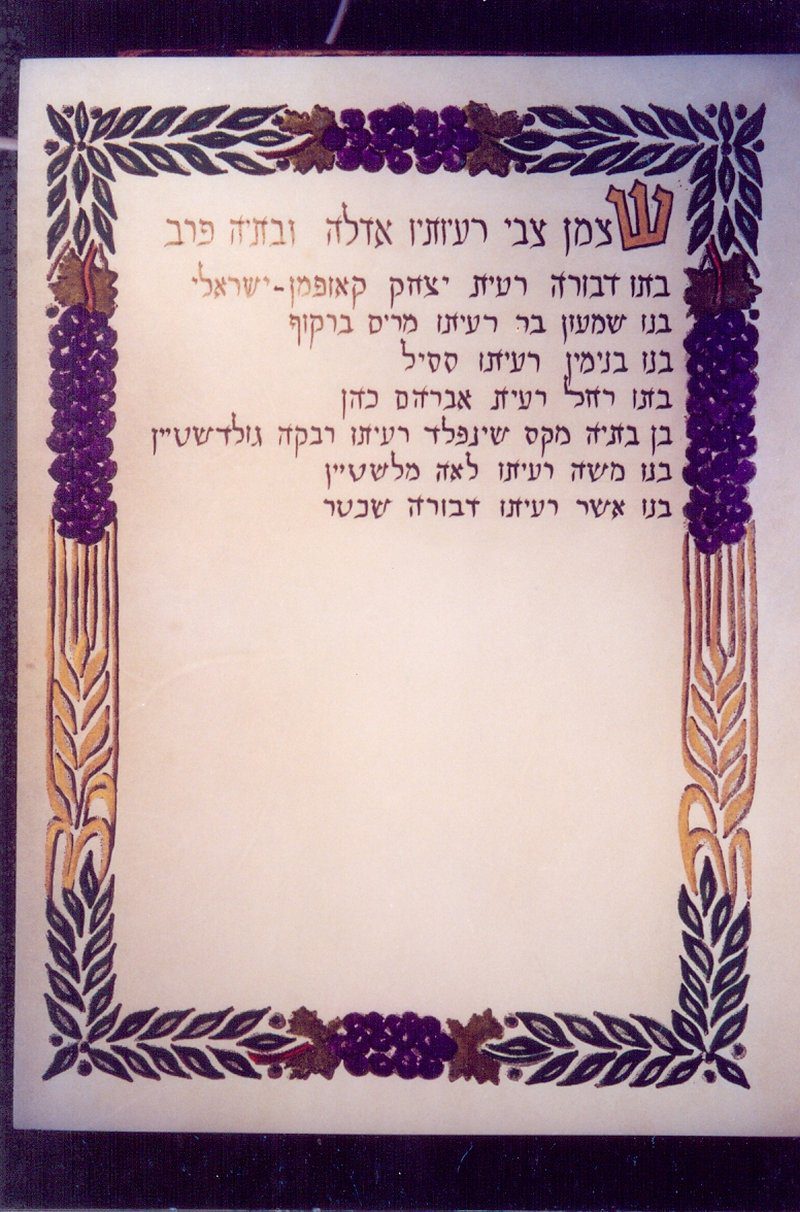 שצמן צבי רעיותיו אדלה ובתיה פרב
בתו דבורה רעית יצחק קאופמן-ישראלי
בנו שמעון בר רעיתו מרים ברקוף
בנו בנימין רעיתו ססיל
בתו רחל רעית אברהם כהן
בן בתיה מקס שינפלד רעיתו רבקה גולדשטיין
בנו משה רעיתו לאה מלשטיין
בנו אשר רעיתו דבורה שכטר